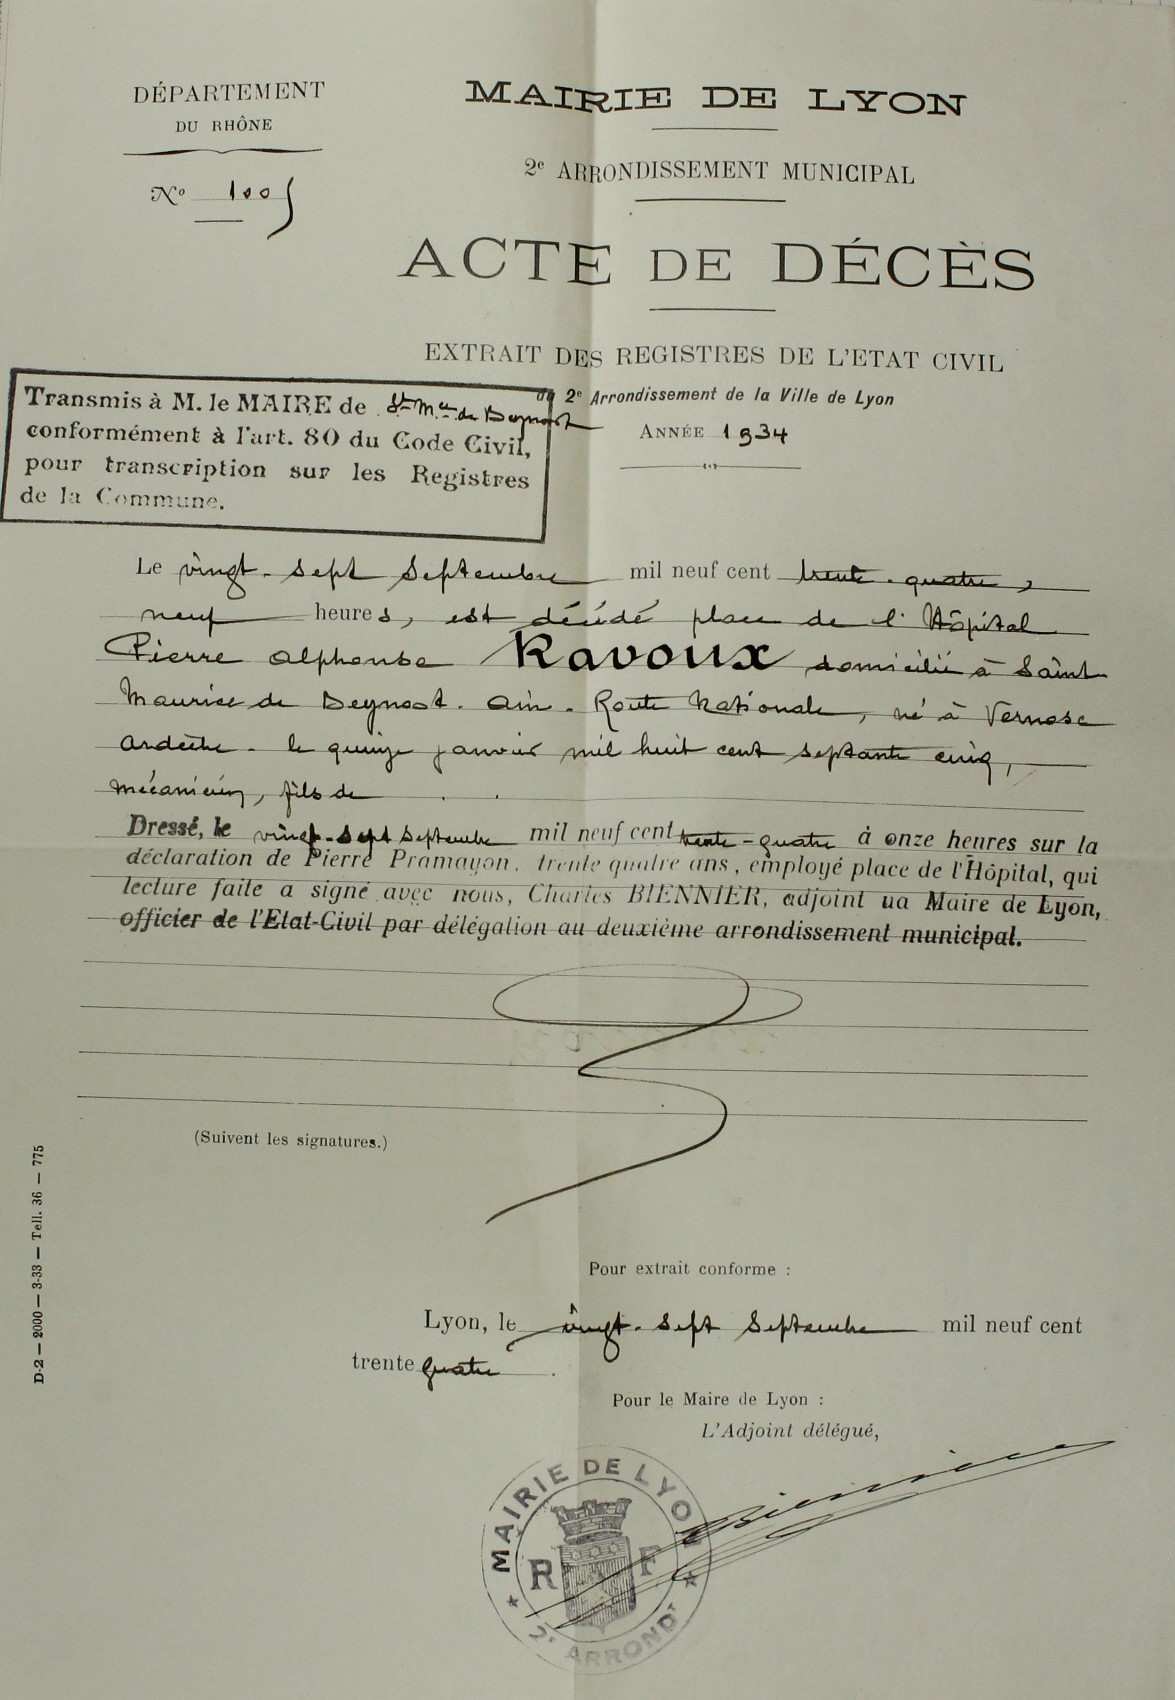 DÉPARTEMENT
DU RHÔNE
Nº 1005
MAIRIE DE LYON
2e ARRONDISSEMENT MUNICIPAL
ACTE DE DÉCÈS
EXTRAIT DES REGISTRES DE L'ETAT CIVIL
du 2e Arrondissement de la Ville de Lyon
ANNÉE 1934
Transmis à M. le MAIRE de St Mce de Beynost
conformément à l'art. 80 du Code Civil,
pour transcription sur les Registres
de la Commune.
Le vingt-sept Septembre mil neuf cent trente-quatre,
neuf heures, est décédé place de l'Hôpital
Pierre Alphonse Ravoux domicilié à Saint
Maurice de Beynost. Ain. Route Nationale, né à Vernosc
Ardèche. le quinze janvier mil huit cent septante cinq,
mécanicien, fils de . .
Dressé, le vingt-sept Septembre mil neuf cent trente-quatre à onze heures sur la
déclaration de Pierre Pramayon, trente quatre ans, employé place de l'Hôpital, qui
lecture faite a signé avec nous, Charles BIENNIER, adjoint ua Maire de Lyon,
officier de l'Etat-Civil par délégation au deuxième arrondissement municipal.
(Suivent les signatures.)
D-2 — 2000 — 3-33 — Tell. 36 — 775
Pour extrait conforme :
Lyon, le vingt-sept Septembre mil neuf cent
trente quatre.
Pour le Maire de Lyon :
L'Adjoint délégué,
Biennier
MAIRIE DE LYON
R F
2e ARRONDt